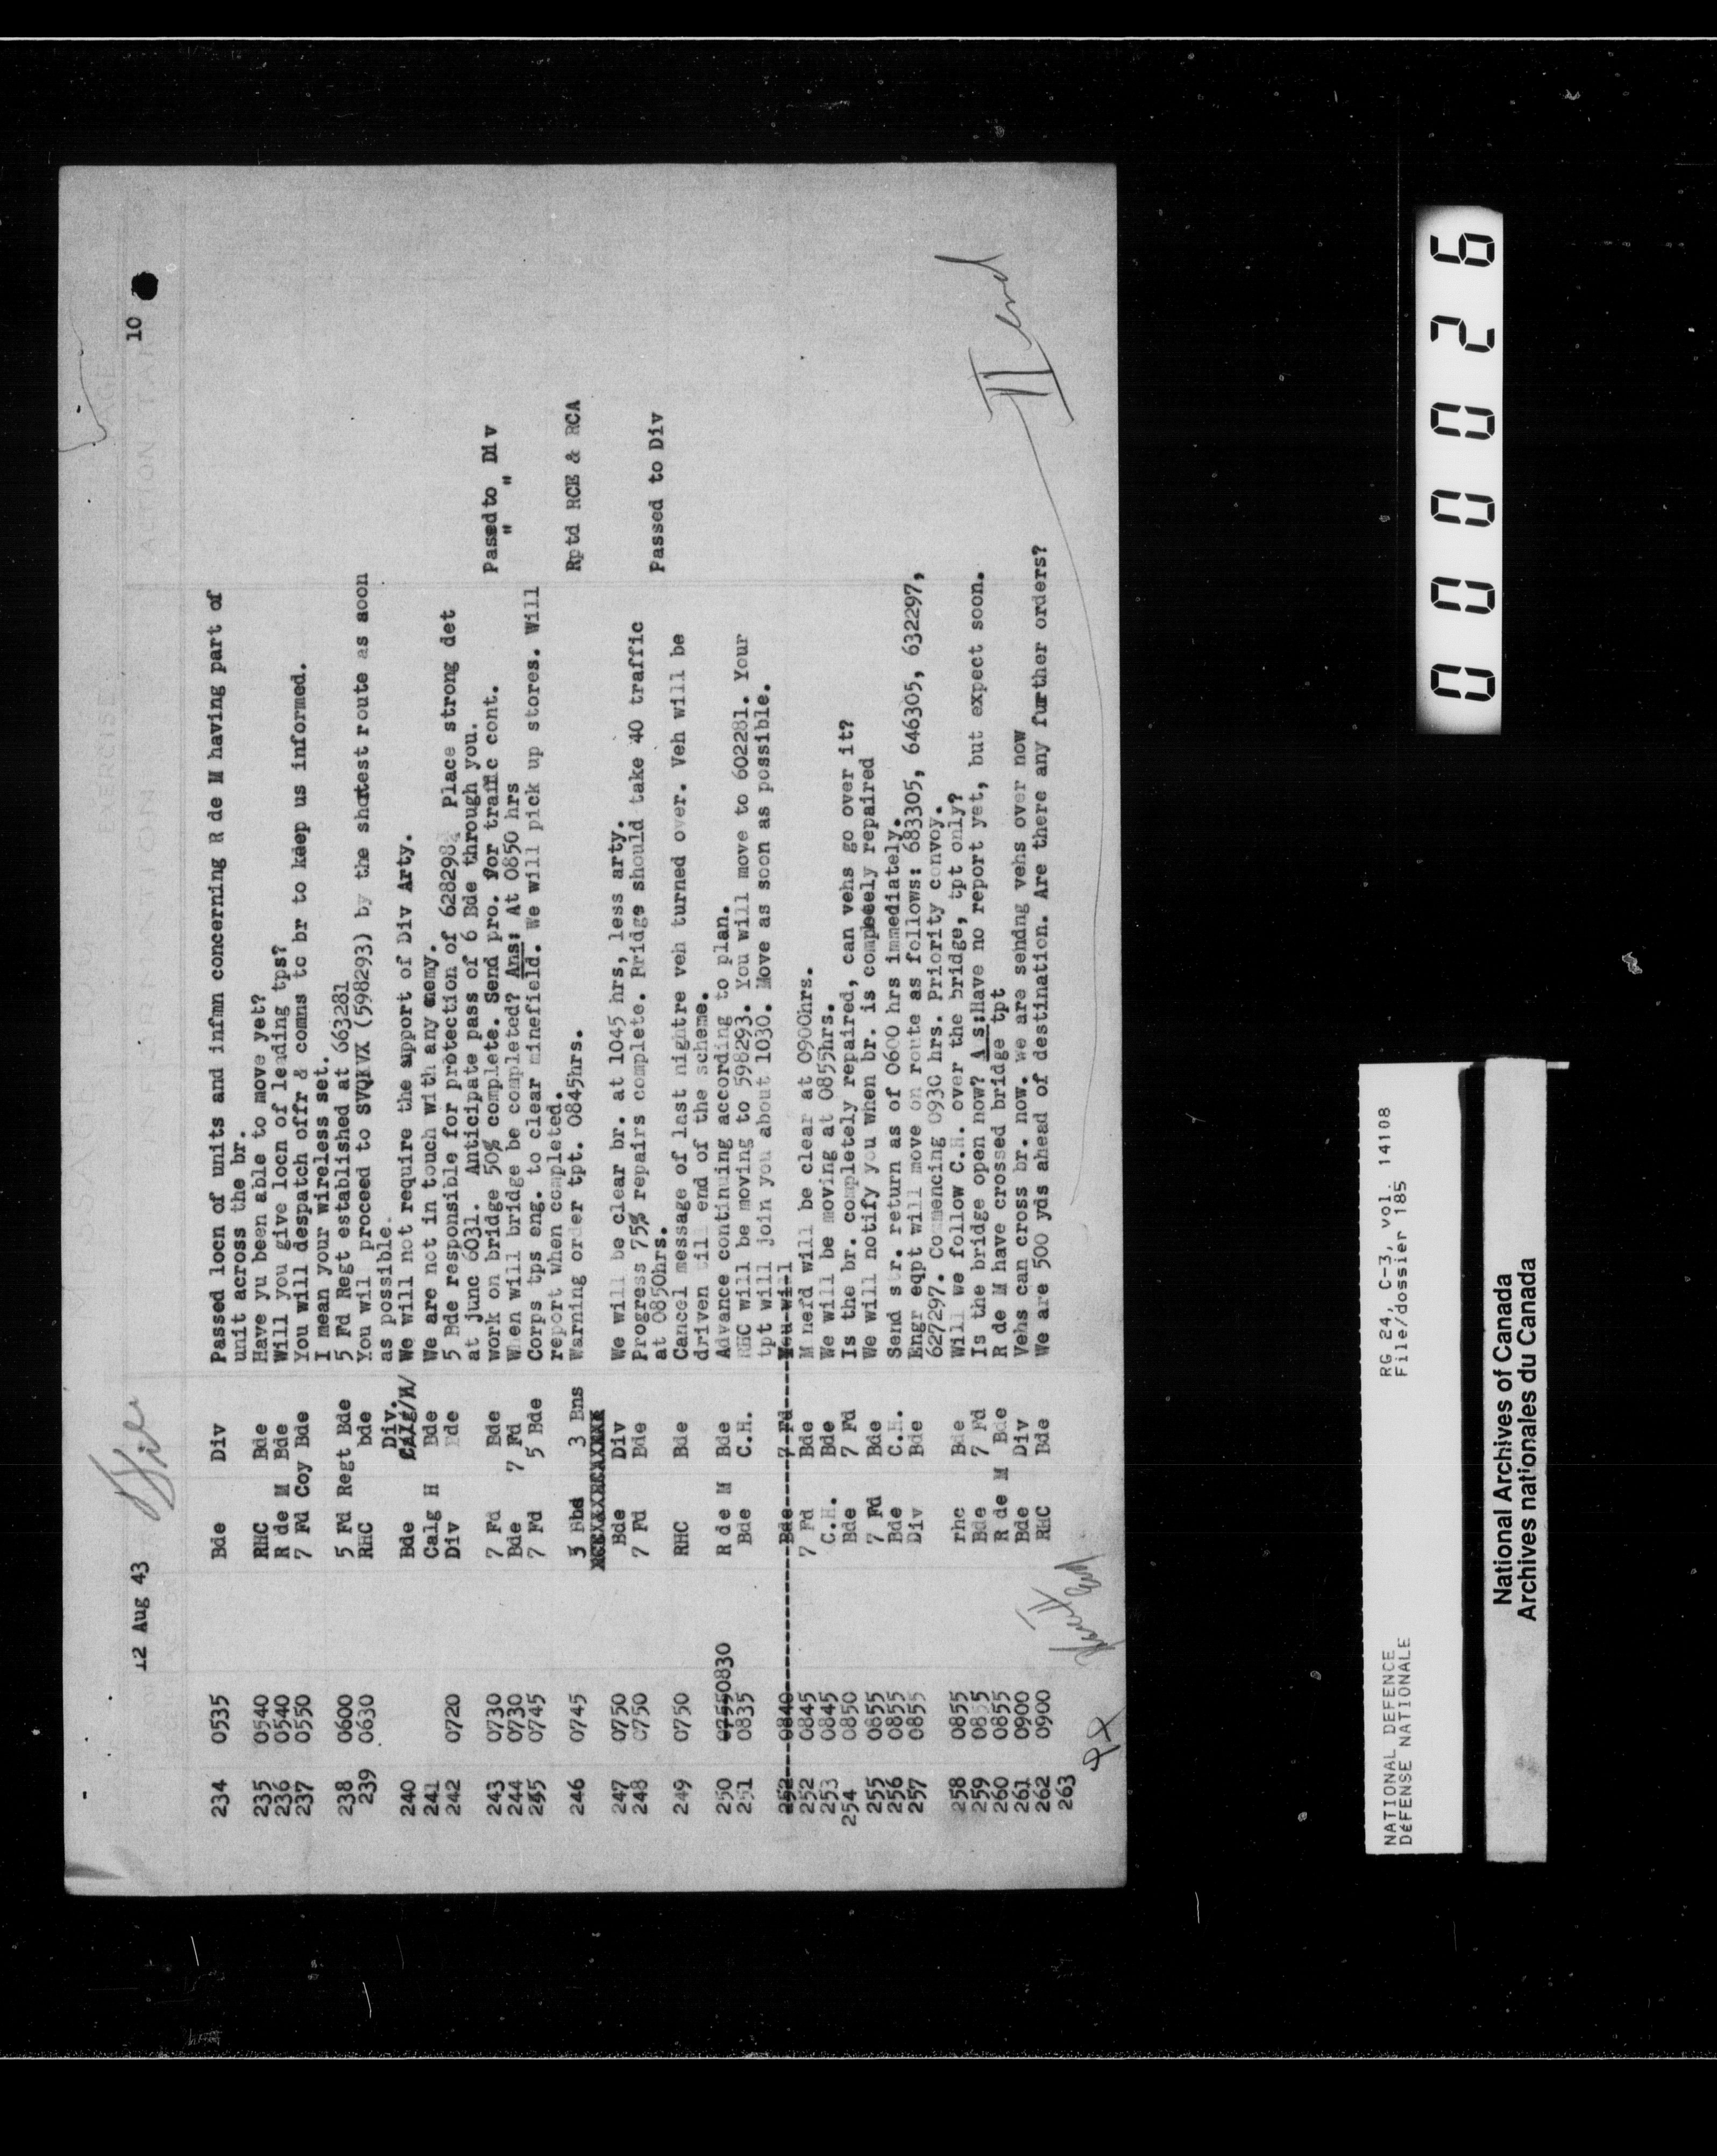 12 Aug 43 10
234 0535 Bde Div Passed locn of units and infmn concerning R de M having part of
unit across the br.
235 0540 RHC Bde Have yu been able to move yet?
236 0540 R de M Bde Will you give locn of leading tps?
237 0550 7 Fd Coy Bde You will despatch offr & comns to br to keep us informed.
I mean your wireless set.
238 0600 5 Fd Regt Bde 5 Fd Regt established at 663281
239 0630 RHC bde You will proceed to SVQKVX (598293) by the shotest route as aoon
as possible.
240 Bde Div. We will not require the support of Div Arty.
241 Calg H Bde We are not in touch with any enemy.
242 0720 Div Bde 5 Bde responsible for protection of 628298. Place strong det
at junc 6031. Anticipate pass of 6 Bde through you.
243 0730 7 Fd Bde Work on bridge 50% complete. Send pro. for traffic cont. Passed to Div
244 0730 Bde 7 Fd When will bridge be completed? Ans: At 0850 hrs " "
245 0745 7 Fd 5 Bde Corps tps eng. to clear minefield. We will pick up stores. Will
report when completed.
246 0745 5 Bbd 3 Bns Warning order tpt. 0845hrs. Rptd RCE & RCA
247 0750 Bde Div We will be clear br. at 1045 hrs, less arty.
248 0750 7 Fd Bde Progress 75% repairs complete. Bridge should take 40 traffic Passed to Div
at 0850hrs.
249 0750 RHC Bde Cancel message of last nightre veh turned over. Veh will be
driven till end of the scheme.
250 07550830 R de M Bde Advance continuing according to plan.
251 0835 Bde C.H. RHC will be moving to 598293. You will move to 602281. Your
tpt will join you about 1030. Move as soon as possible.
252 0840 Bde 7 Fd You will
252 0845 7 Fd Bde M nefd will be clear at 0900hrs.
253 0845 C.H. Bde We will be moving at 0855hrs.
254 0850 Bde 7 Fd Is the br. completely repaired, can vehs go over it?
255 0855 7 Fd Bde We will notify you when br. is completely repaired
256 0855 Bde C.H. Send str. return as of 0600 hrs immediately.
257 0855 Div Bde Engr eqpt will move on route as follows: 683305, 646305, 632297,
627297. Commencing 0930 hrs. Priority convoy.
258 0855 rhc Bde Will we follow C.H. over the bridge, tpt only?
259 0855 Bde 7 Fd Is the bridge open now? A s:Have no report yet, but expect soon.
260 0855 R de M Bde R de M have crossed bridge tpt
261 0900 Bde Div Vehs can cross br. now. We are sendng vehs over now
262 0900 RHC Bde We are 500 yds ahead of destination. Are there any further orders?
263
II end
000026
NATIONAL DEFENCE RG 24, C-3, vol. 14108
DéFENSE NATIONALE File/dossier 185
National Archives of Canada
Archives nationales du Canada